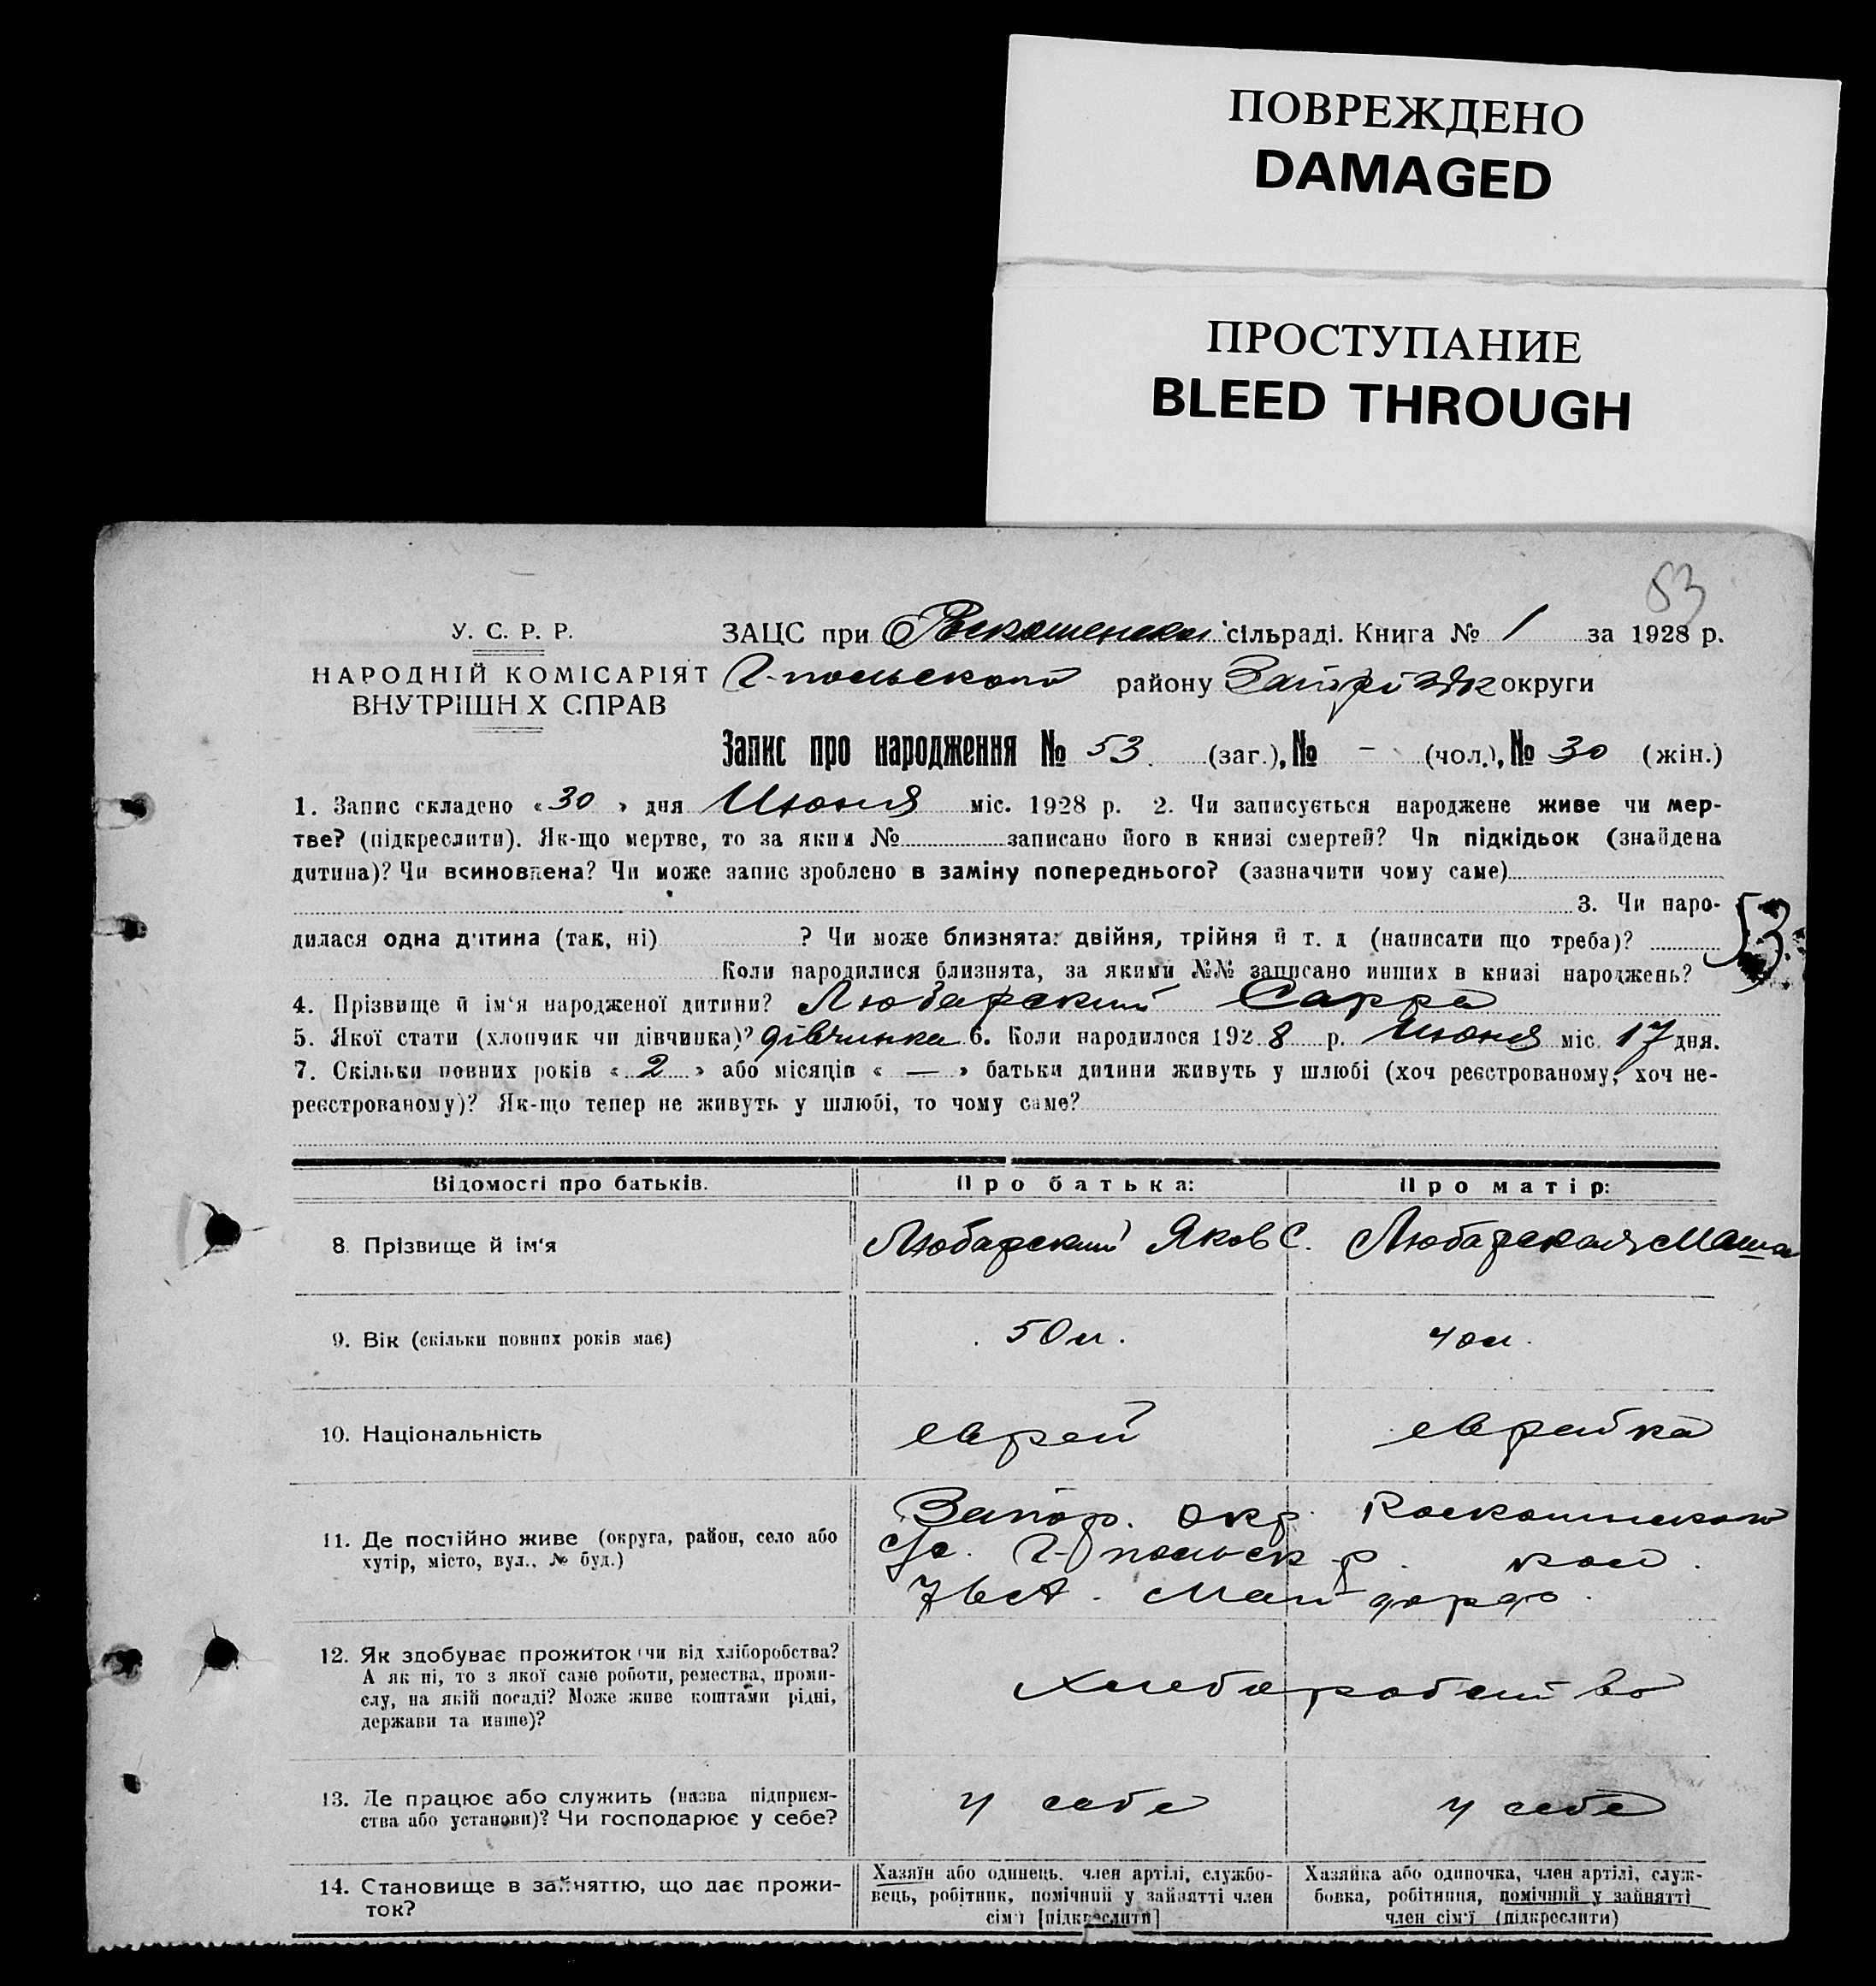 ПОВРЕЖДЕНО
DAMAGED
ПРОСТУПАНИЕ
BLEED THROUGH
53
У. С. Р. Р.
НАРОДНІЙ КОМІСАРІЯТ
ВНУТРІШН Х СПРАВ
ЗАЦС при сільраді. Книга № 1 за 1928 р.
району округи
Запис про народження № 53 (заг.), № - (чол.), № 30 (жін.)
1. Запис складено «30» дня Июня міс. 1928 р. 2. Чи записується народжене живе чи мер-
тве? (підкреслити). Як-що мертве, то за яким № записано його в книзі смертей? Чи підкідьок (знайдена
дитина)? Чи всиновлена? Чи може запис зроблено в заміну попереднього? (зазначити чому саме)
3. Чи наро-
дилася одна дитина (так, ні) ? Чи може близнята: двійня, трійня й т. д (написати що треба)?
53
Коли народилися близнята, за якими №№ записано инших в книзі народжень?
4. Прізвище й ім'я народженої дитини? Любарский Сарра
5. Якої стати (хлопчик чи дівчинка)? дівчинка 6. Коли народилося 1928 р. Июня міс. 17 дня.
7. Скільки повних років «2» або місяців «—» батьки дитини живуть у шлюбі (хоч реєстрованому, хоч не-
реєстрованому)? Як-що тепер не живуть у шлюбі, то чому саме?
Відомості про батьків. Про батька: Про матір:
8. Прізвище й ім'я Любарский Яков С. Любарская Маша
9. Вік (скільки повних років має) 50 л. 40 л.
10. Національність еврей еврейка
11. Де постійно живе (округа, район, село або
хутір, місто, вул., № буд.)
Запор. окр.
с/с.
Майдорф.
12. Як здобуває прожиток чи від хліборобства?
А як ні, то з якої саме роботи, ремества, проми-
слу, на якій посаді? Може живе коштами рідні,
держави та инше)?
13. Де працює або служить (назва підприєм-
ства або установи)? Чи господарює у себе?
у себе у себе
14. Становище в зайняттю, що дає прожи-
ток?
Хазяїн або одинець, член артілі, службо-
вець, робітник, помічний у зайнятті член
сім'ї [підкреслити]
Хазяйка або одиночка, член артілі, служ-
бовка, робітниця, помічний у зайнятті
член сім'ї (підкреслити)